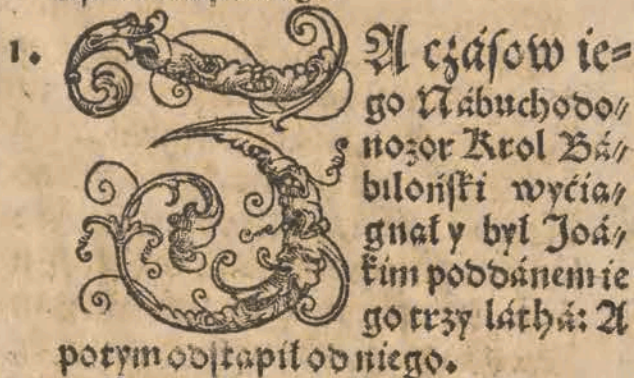 1. ZA czásow ie⸗
go Nábuchodo⸗
nozor Krol Bá⸗
bilońſki wyćia⸗
gnał y był Joá⸗
kim poddánem ie
go trzy láthá: A
potym odſtąpił od niego.